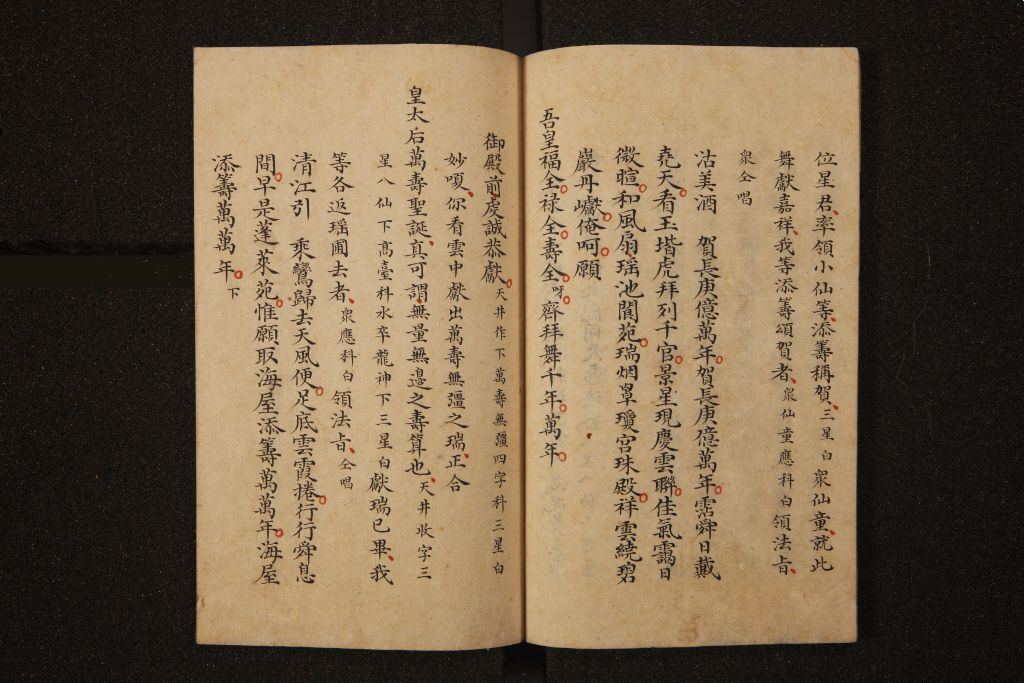 位星君率領小仙等添籌稱賀三星白衆仙童就此
舞獻嘉祥我等添籌頌賀者衆仙童應科白領法旨
衆仝唱
沽美酒　賀長庚億萬年賀長庚億萬年霑舜日戴
堯天看玉堦虎拜列千官景星現慶雲聯佳氣靄日
微暄和風扇瑶池閬苑瑞烟罩瓊宫珠殿祥雲繞碧
巖丹巘俺呵願
吾皇福全禄全壽全呀齊拜舞千年萬年
御殿前虔誠恭獻天井作下萬壽無疆四字科三星白
妙嗄你看雲中獻出萬壽無疆之瑞正合
皇太后萬壽聖誕真可謂無量無邊之壽算也天井收字三
星八仙下高臺科水卒龍神下三星白獻瑞已畢我
等各返瑶圃去者衆應科白領法旨仝唱
清江引　乘鸞歸去天風便足底雲霞捲行行舜息
間早是蓬萊苑惟願取海屋添籌萬萬年海屋
添籌萬萬年下